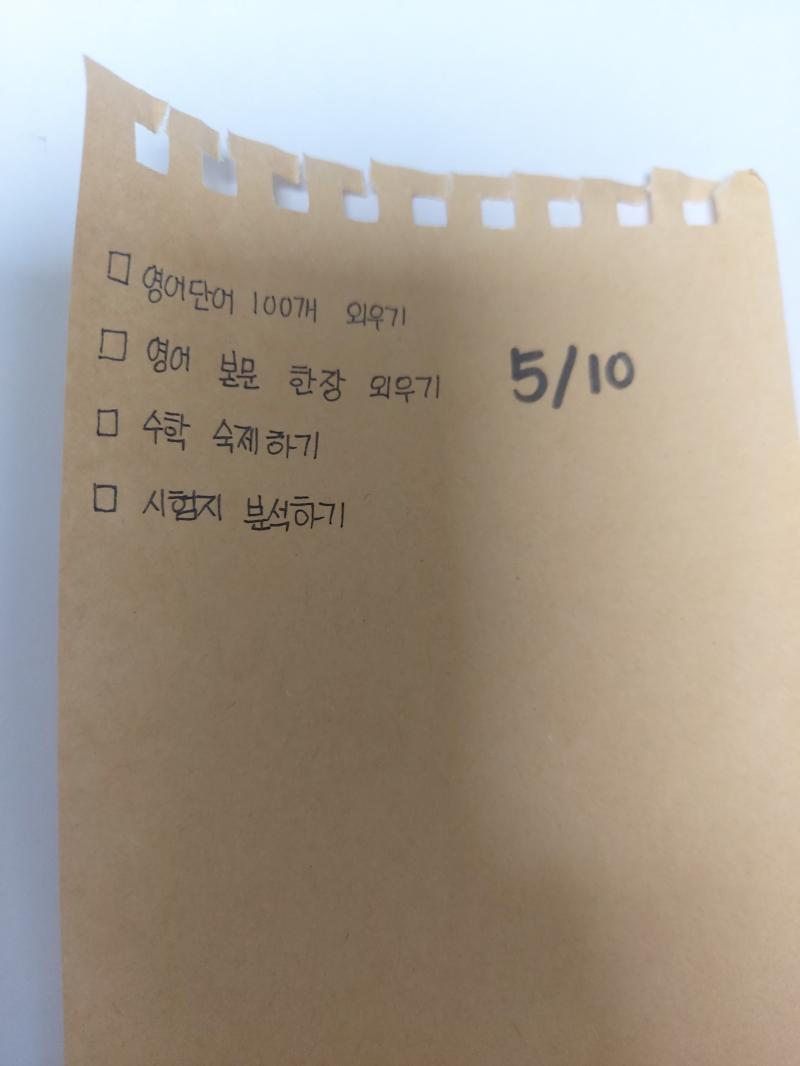 □ 영어단어 100개 외우기
□ 영어 본문 한장 외우기 5/10
□ 수학 숙제하기
□ 시험지 분석하기